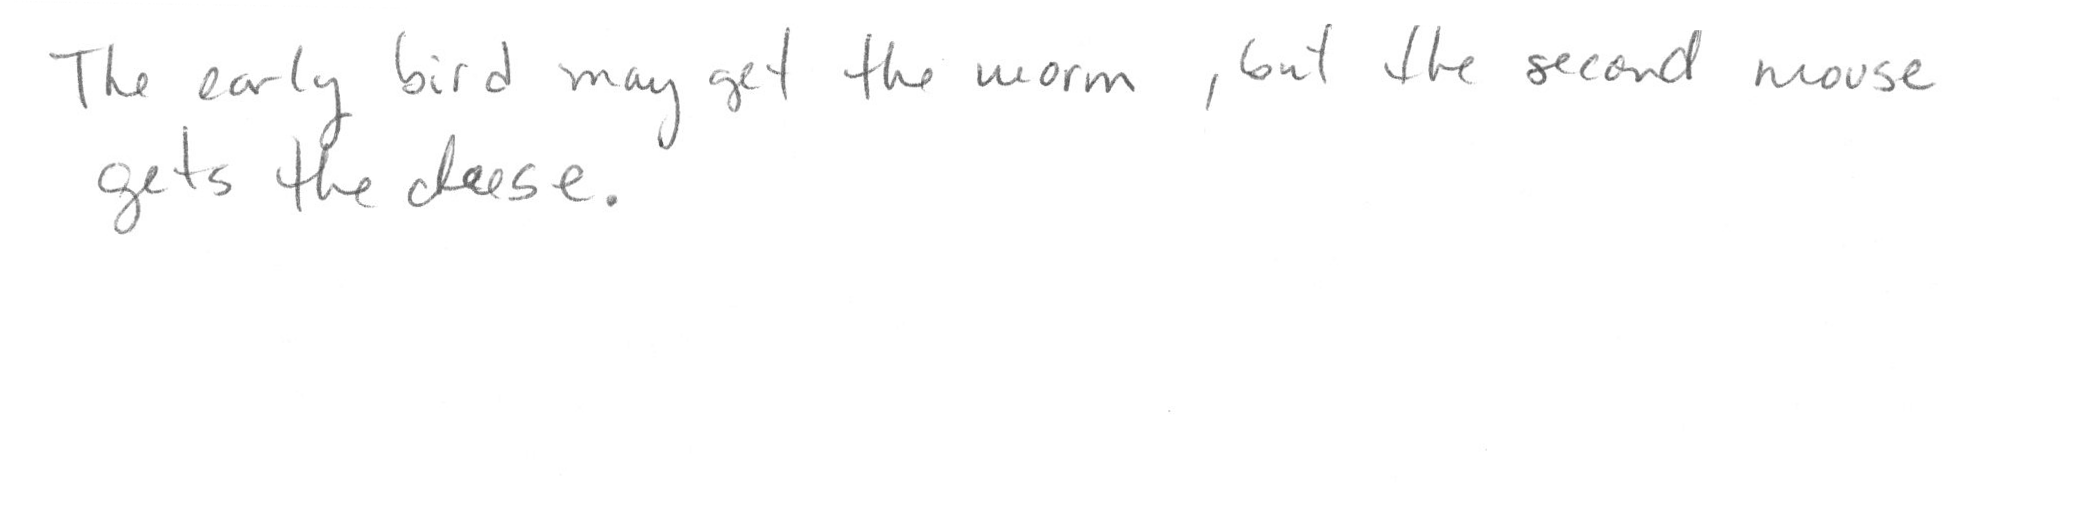 The early bird may get the worm , but the second mouse
gets the cheese.